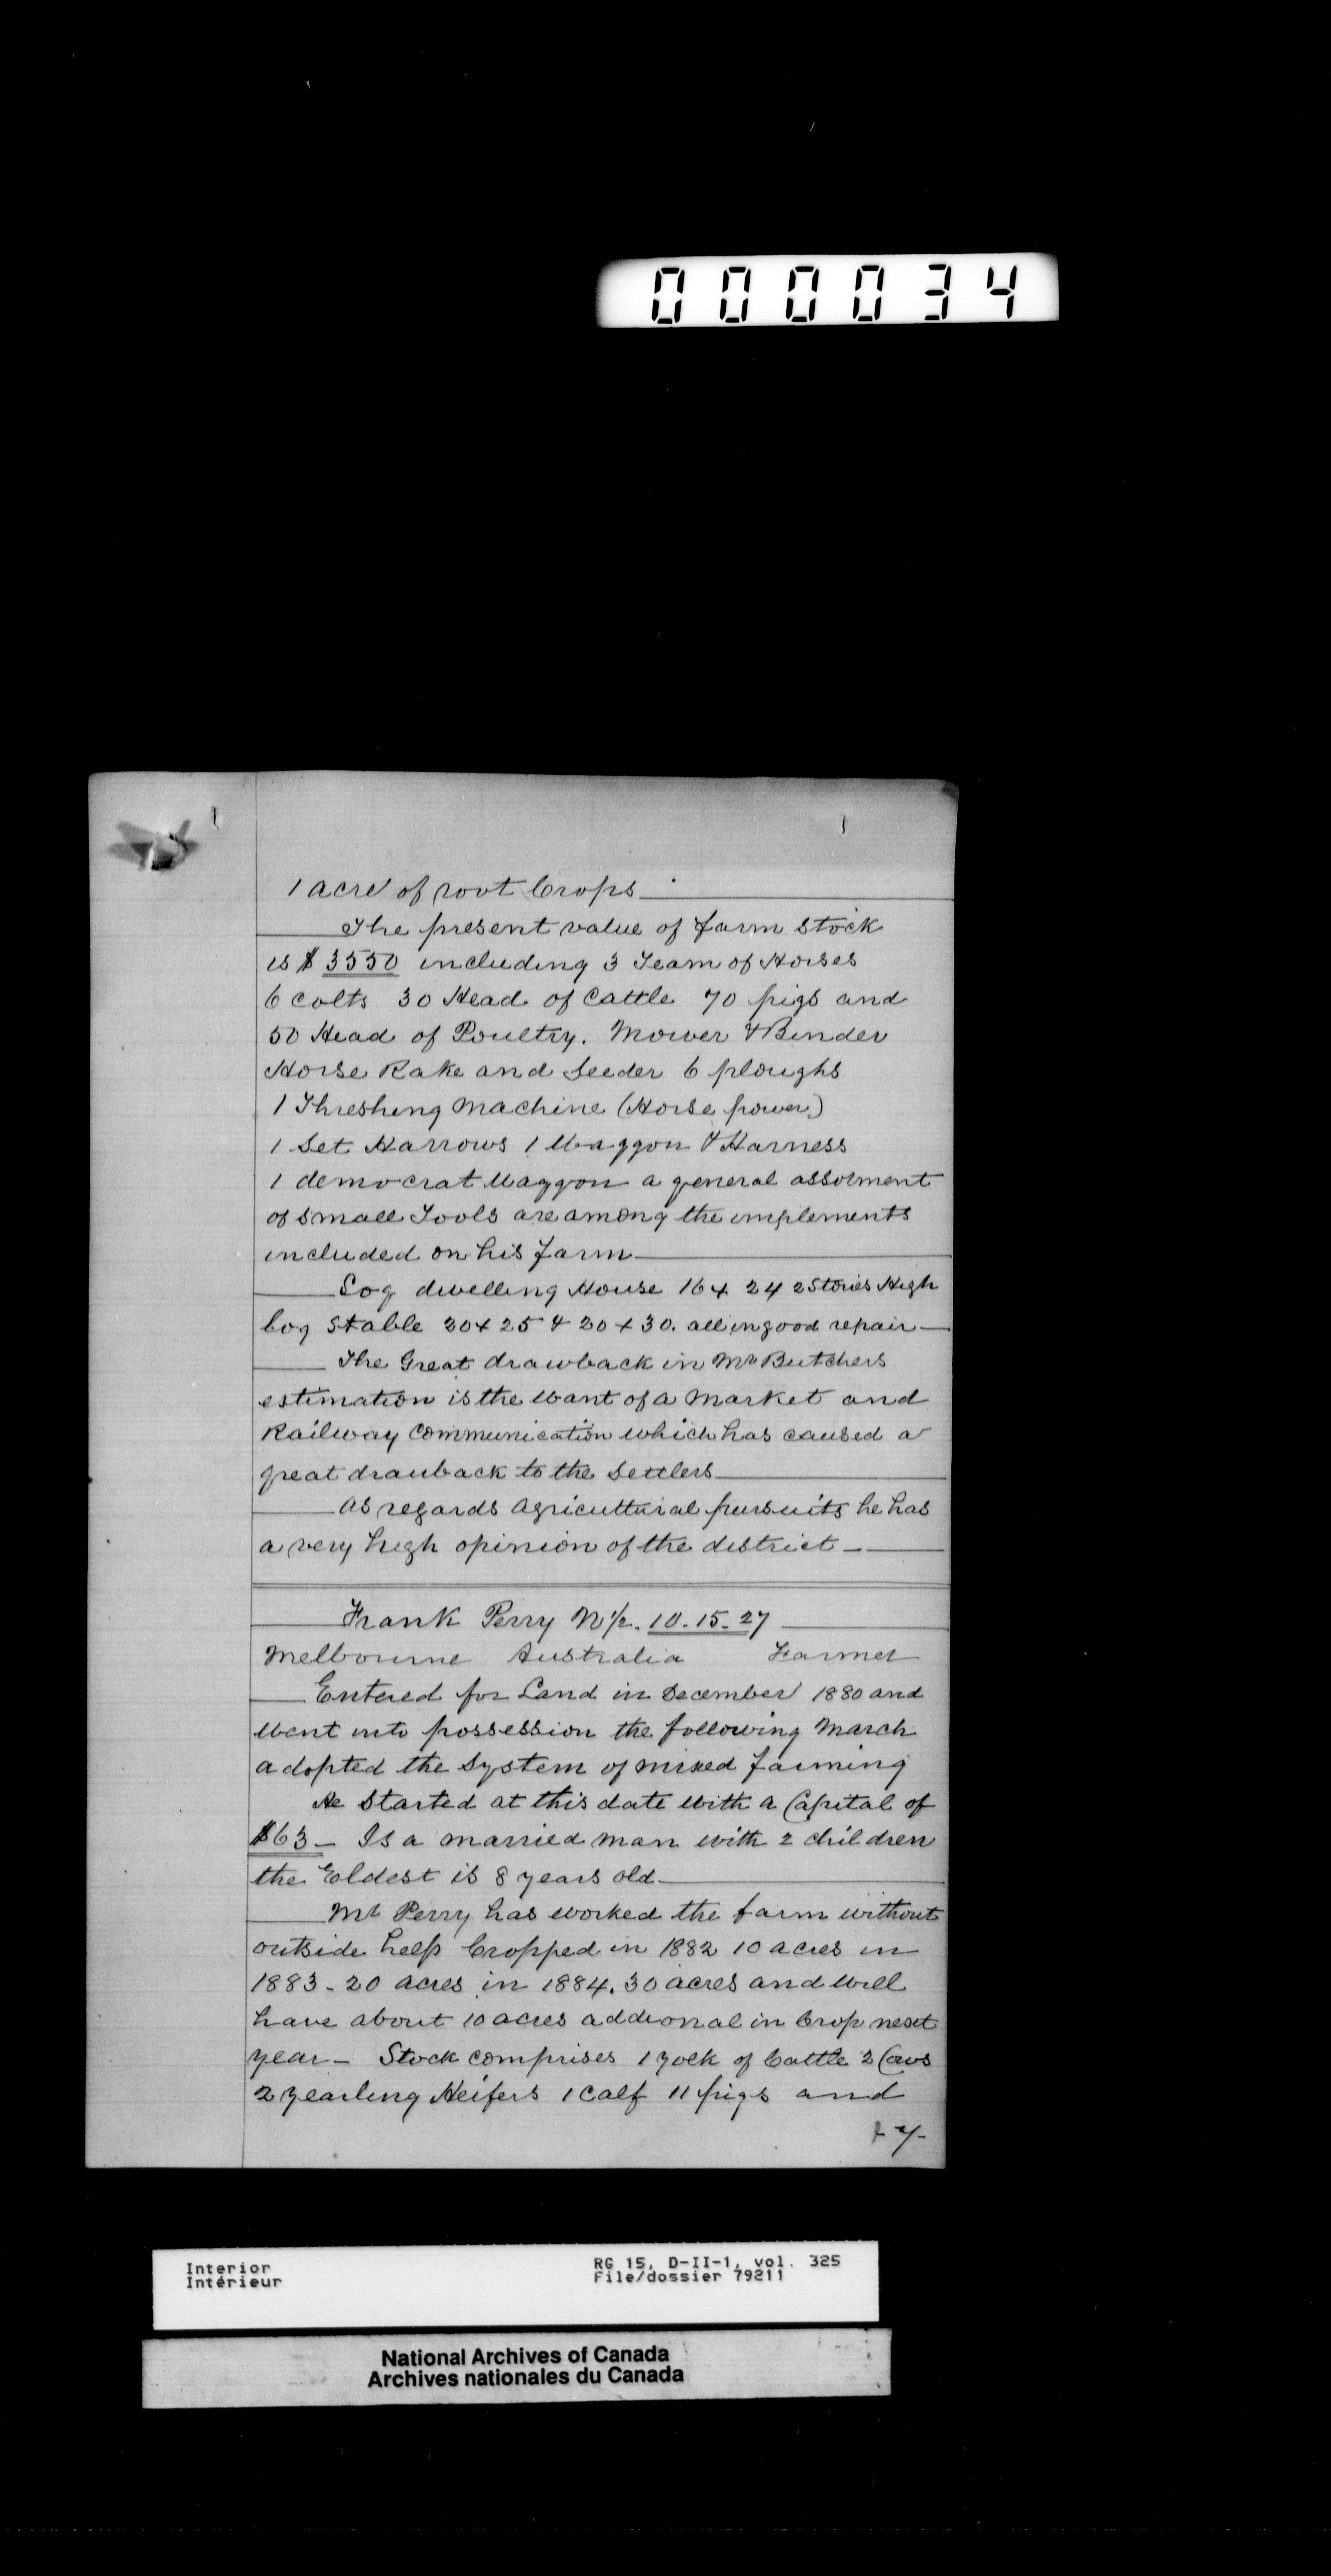 000034
1 acre of root Crops
The present value of farm stock
is $3550 including 3 Team of Horses
6 Colts 30 Head of Cattle 70 pigs and
50 Head of Poultry. Mower & Binder
Horse Rake and Seeder 6 ploughs
1 Threshing Machine (Horse power)
1 Set Harrows 1 Waggon & Harness
1 democrat Waggon a general assorment
of small Tools are among the implements
included on his farm
Log dwelling House 16 x 24 2 Stories High
log stable 20 x 25 & 20 x 30. all in good repair
The Great drawback in Mr Butchers
estimation is the want of a Market and
Railway Communication which has caused a
great drawback to the Settlers
As regards Agricultural pursuits he has
a very high opinion of the district
Frank Perry N 1/2. 10. 15. 27
Melbourne Australia Farmer
Entered for Land in December 1880 and
went into possession the following March
adopted the System of mixed farming
He Started at this date with a Capital of
$63 - Is a married man with 2 children
the Eldest is 8 years old
Mr Perry has worked the farm without
outside help Cropped in 1882 10 acres in
1883 - 20 acres in 1884. 30 acres and will
have about 10 acres addional in Crop next
year - Stock comprises 1 yoek of Cattle 2 Cows
2 yearling Heifers 1 Calf 11 pigs and
- 7 -
Interior
Intérieur
RG 15, D-II-1, vol. 325
File/dossier 79211
National Archives of Canada
Archives nationales du Canada